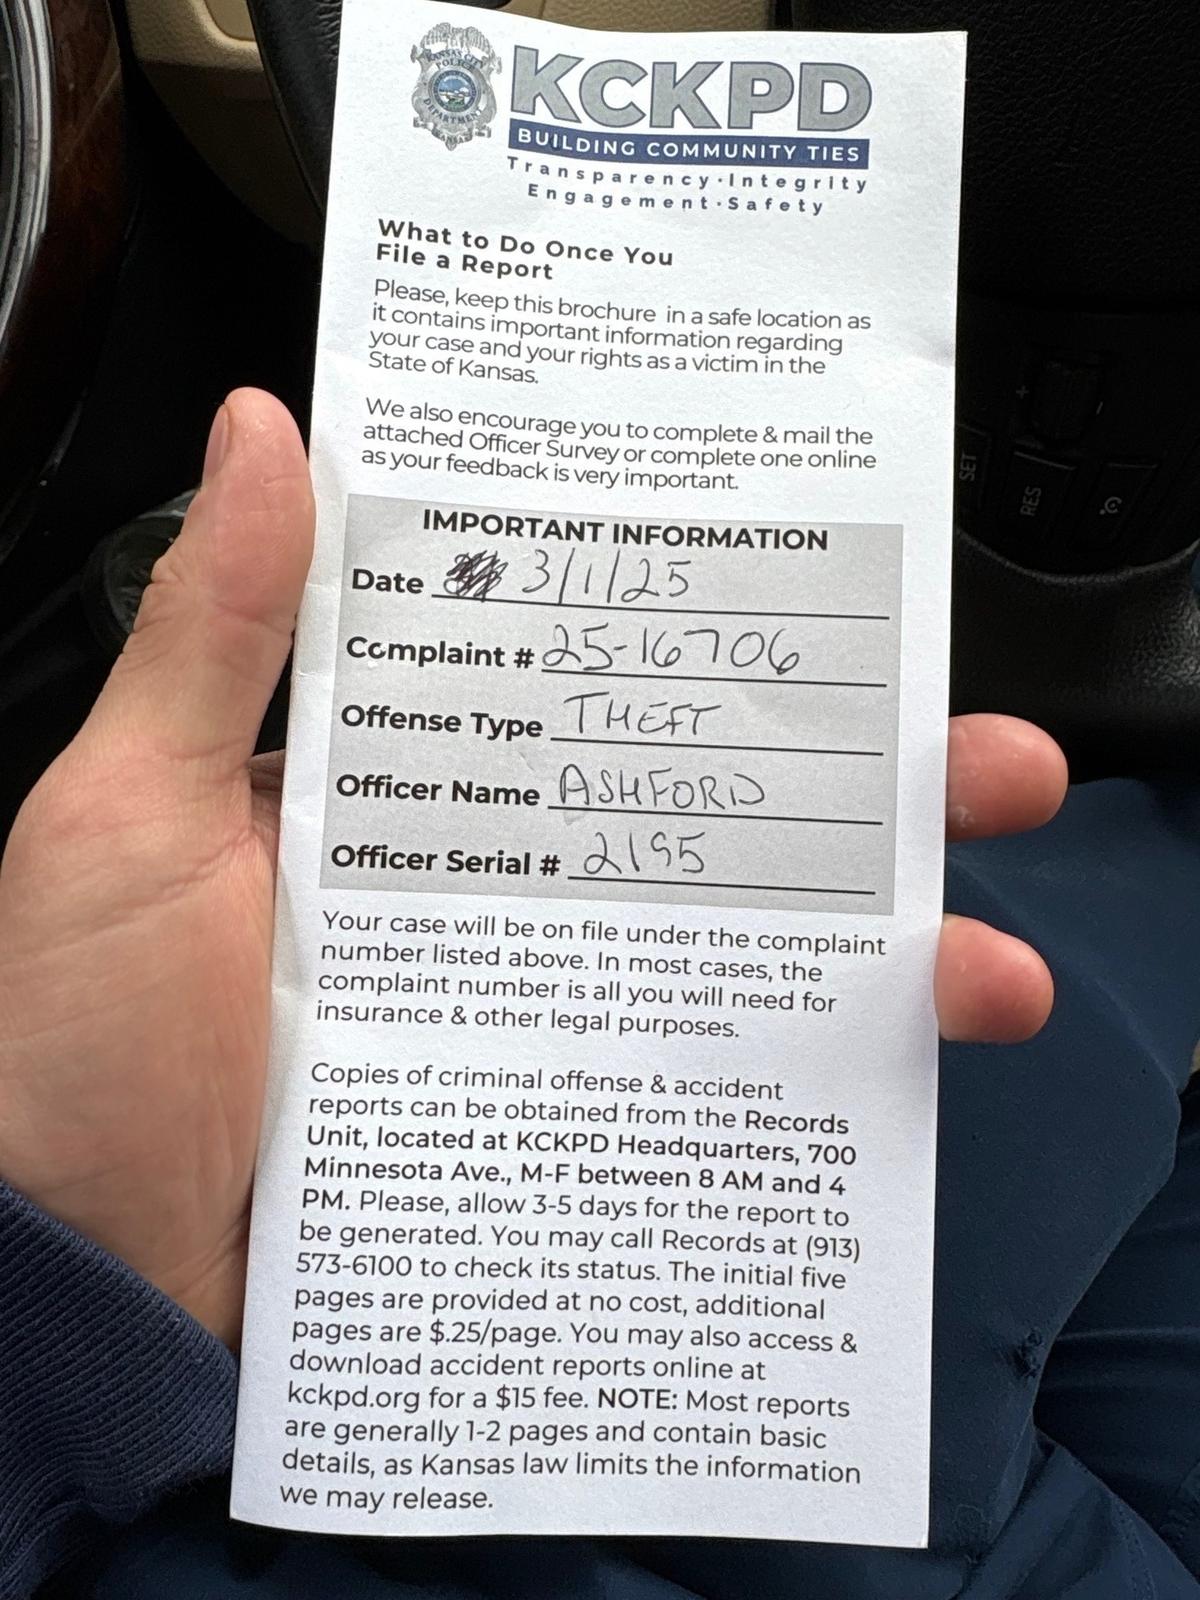 KANSAS CITY
POLICE
DEPARTMENT
KANSAS
KCKPD
BUILDING COMMUNITY TIES
Transparency·Integrity
Engagement·Safety
What to Do Once You
File a Report
Please, keep this brochure in a safe location as
it contains important information regarding
your case and your rights as a victim in the
State of Kansas.
We also encourage you to complete & mail the
attached Officer Survey or complete one online
as your feedback is very important.
IMPORTANT INFORMATION
Date 3/1/25
Complaint # 25-16706
Offense Type THEFT
Officer Name ASHFORD
Officer Serial # 2195
Your case will be on file under the complaint
number listed above. In most cases, the
complaint number is all you will need for
insurance & other legal purposes.
Copies of criminal offense & accident
reports can be obtained from the Records
Unit, located at KCKPD Headquarters, 700
Minnesota Ave., M-F between 8 AM and 4
PM. Please, allow 3-5 days for the report to
be generated. You may call Records at (913)
573-6100 to check its status. The initial five
pages are provided at no cost, additional
pages are $.25/page. You may also access &
download accident reports online at
kckpd.org for a $15 fee. NOTE: Most reports
are generally 1-2 pages and contain basic
details, as Kansas law limits the information
we may release.
SET
RES